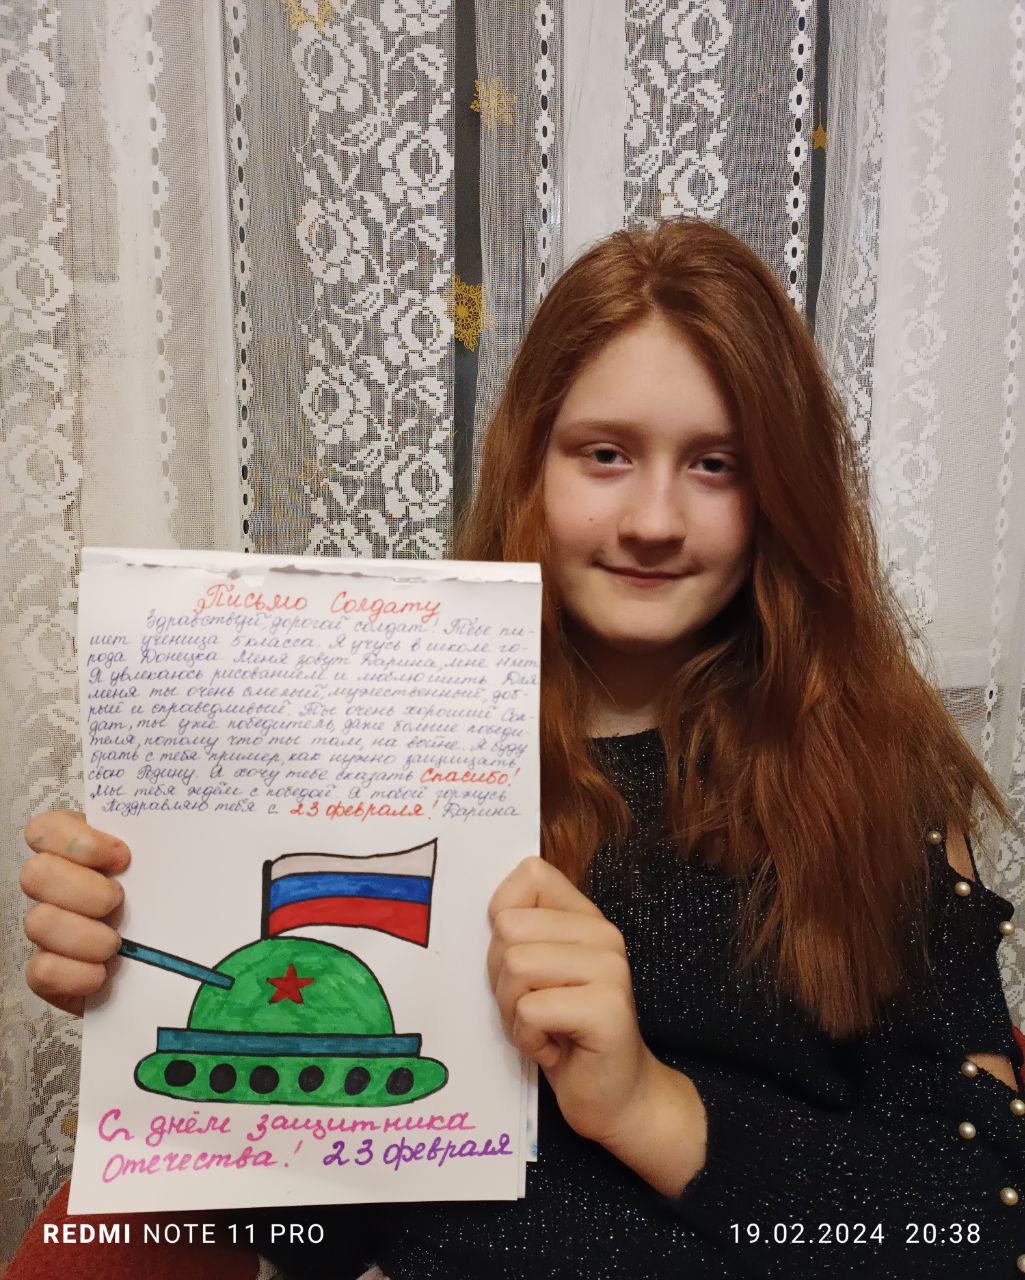 Письмо Солдату
Здравствуй дорогой солдат! Тебе пи-
шет ученица 5 класса. Я учусь в школе го-
рода Донецка. Меня зовут Дарина, мне 11 лет.
Я увлекаюсь рисованием и люблю шить. Для
меня ты очень смелый, мужественный, доб-
рый и справедливый. Ты очень хороший Сол-
дат, ты уже победитель, даже больше победи-
теля, потому что ты там, на войне. Я буду
брать с тебя пример, как нужно защищать
свою Родину. Я хочу тебе сказать Спасибо!
Мы тебя ждём с победой. Я тобой горжусь.
Поздравляю тебя с 23 февраля! Дарина
С днём защитника
Отечества! 23 февраля
REDMI NOTE 11 PRO
19.02.2024 20:38